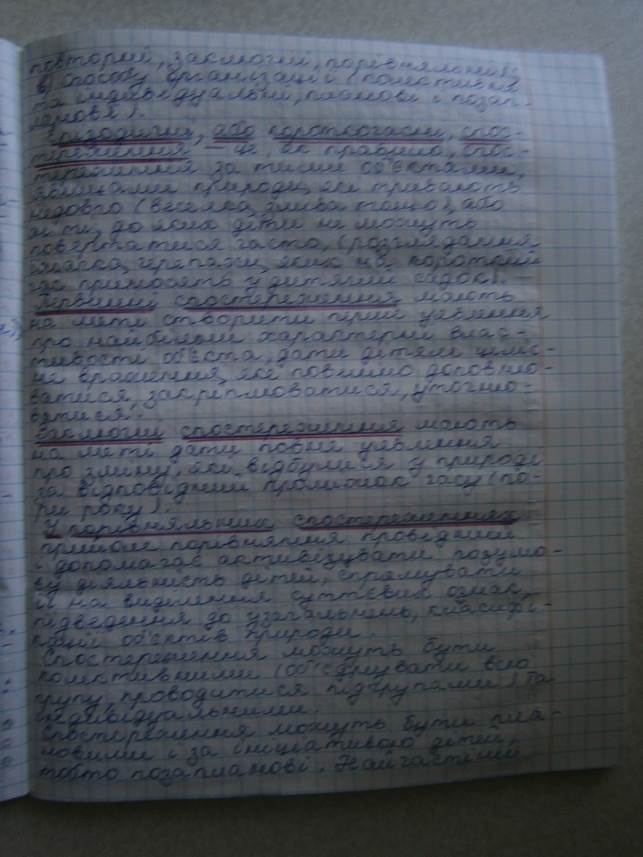 повторні, заключні, порівняльні);
в) способу організації (колективні
та індивідуальні, планові і позап-
ланові).
Епізодичні, або короткочасні, спос-
тереження – це, як правило, спос-
тереження за тими об'єктами,
явищами природи, які тривають
недовго (веселка, злива тощо), або
ж ті, до яких діти не можуть
повертатися часто, (розглядання
їжачка, черепахи, яких на короткий
час приносять у дитячий садок).
Первинні спостереження мають
на меті створити перші уявлення
про найбільш характерні влас-
тивості об'єкта, дати дітям ціліс-
не враження, яке повинно доповню-
ватися, закріплюватися, уточню-
ватися.
Заключні спостереження мають
на меті дати повне уявлення
про зміни, які відбулися у природі
за відповідний проміжок часу (по-
ри року).
У порівняльних спостереженнях
прийом порівняння провідний
і допомагає активізувати розумо-
ву діяльність дітей, спрямувати
її на виділення суттєвих ознак,
підведення до узагальнень, класифі-
кації об'єктів природи.
Спостереження можуть бути
колективними (об'єднувати всю
групу, проводитися підгрупами) та
індивідуальними.
Спостереження можуть бути пла-
новими і за ініціативою дітей,
тобто позапланові. Найчастіше